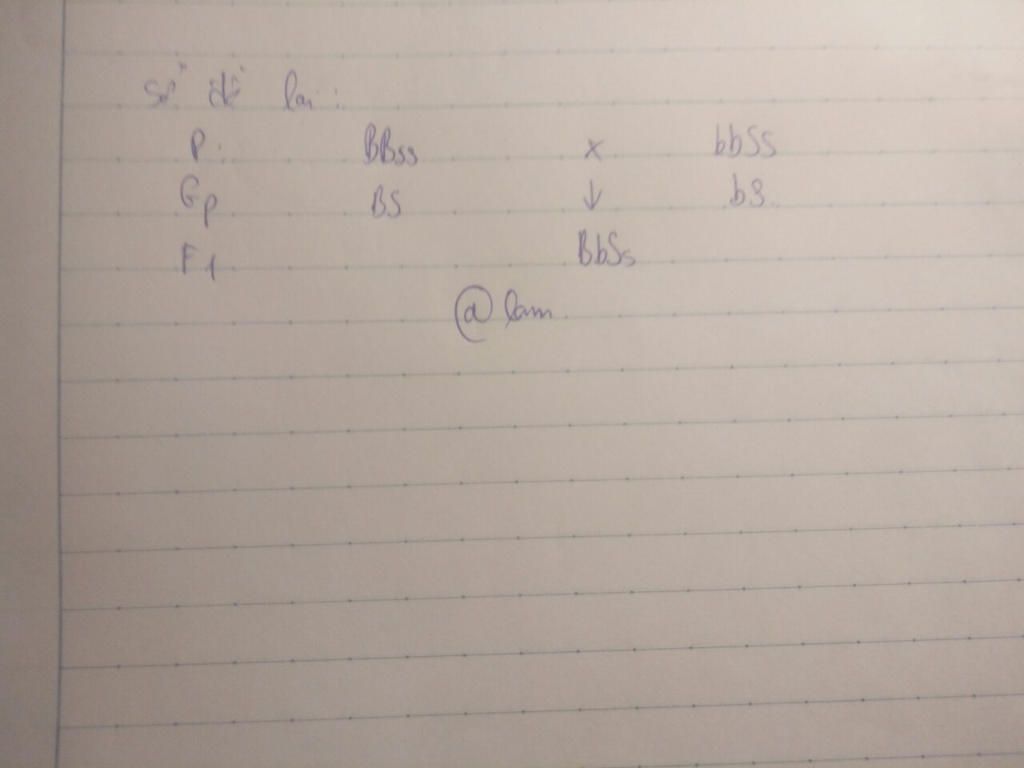 Sơ đồ lai :
P: BBss x bbSS
Gp BS ↓ bS
F1 BbSs
@ lam